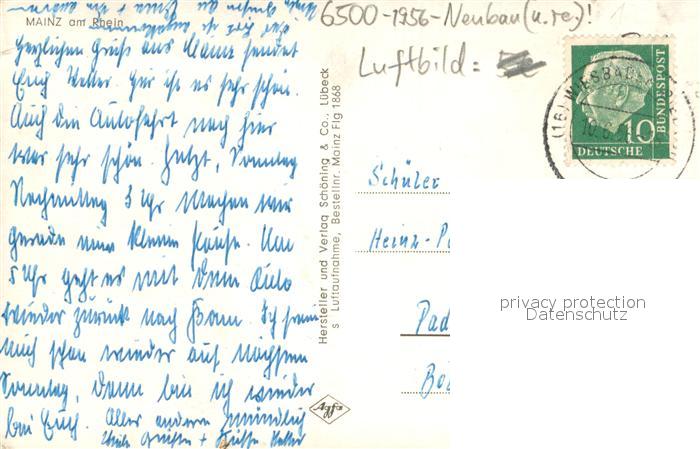 MAINZ am Rhein
6500-1956-Neubau (u.re.)!
Luftbild =
Herzlichen Gruß aus Mainz sendet
Euch Vater. Hier ist es sehr schön.
Auch die Autofahrt nach hier
war sehr schön. Jetzt, Sonntag
Nachmittag 3 Uhr machen wir
gerade eine kleine Pause. Um
5 Uhr geht es mit dem Auto
wieder zurück nach
Ich freue
mich schon wieder auf nächsten
Sonntag, dann bin ich wieder
bei Euch. Alles andere mündlich
Viele Grüße + Küsse Vater
Hersteller und Verlag Schöning & Co., Lübeck
s Luftaufnahme, Bestellnr. Mainz Flg 1868
Agfa
(16) WIESBADEN
10
DEUTSCHE
BUNDESPOST
Schüler
Heinz-P
Pad
privacy protection
Datenschutz